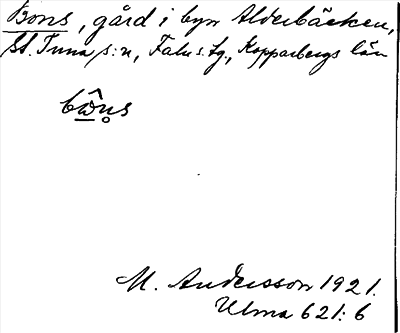 Bons, gård i byn Alderbäcken,
St. Tuna s:n, Falu s. Lg., Kopparbergs län
bω̂n̥s
M. Andersson 1921.
Ulma 621:6